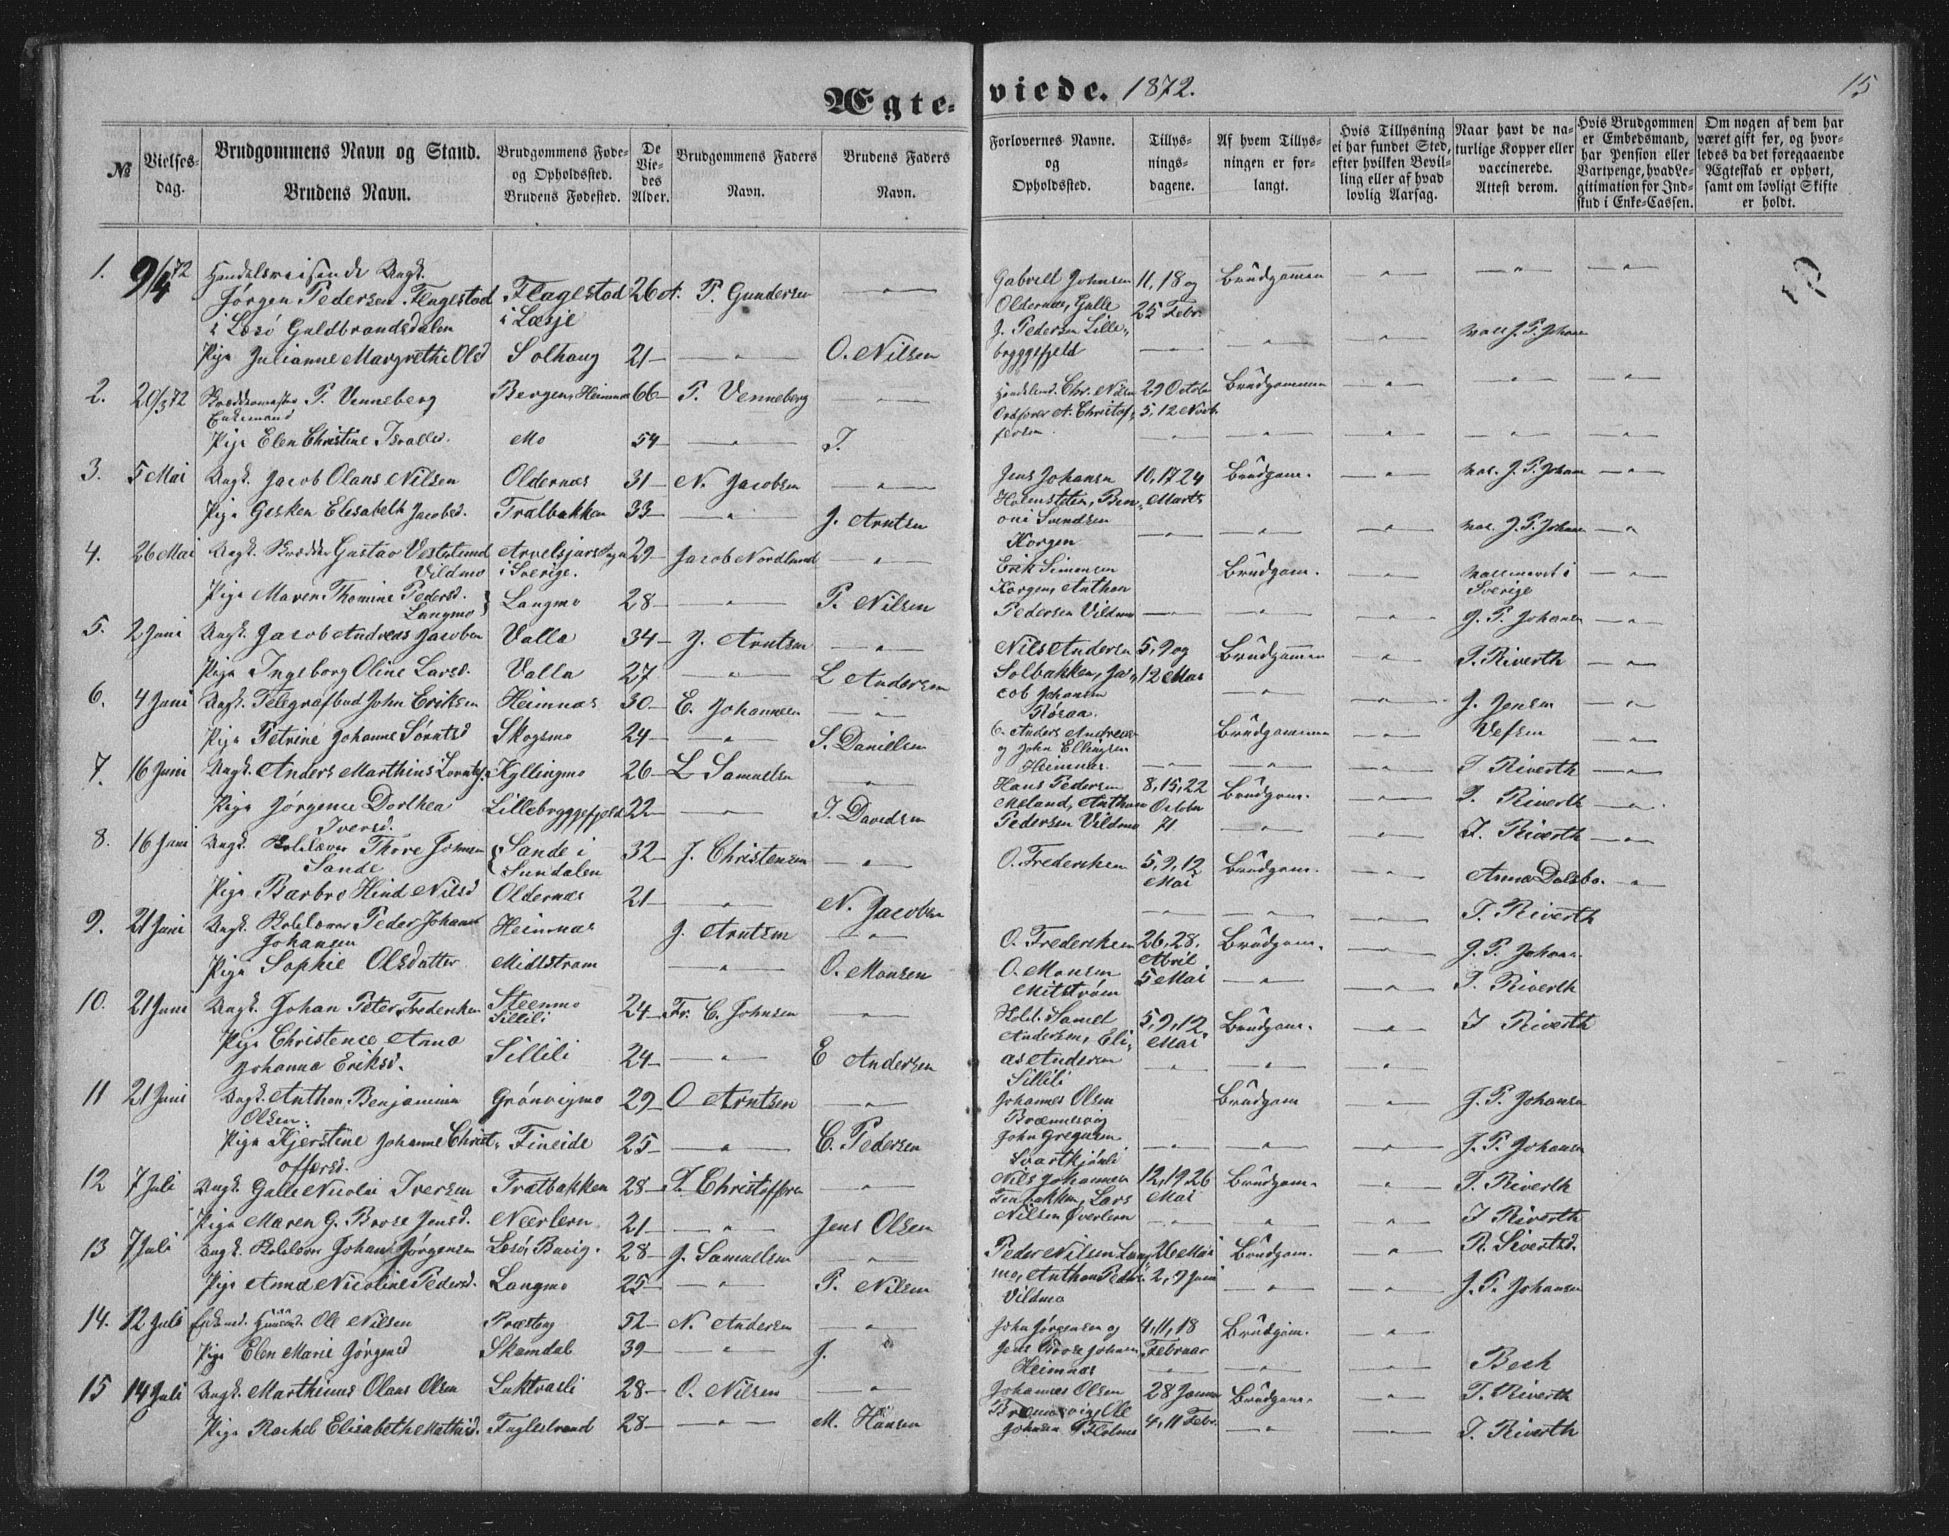 Ægte-viede. 1872. 15
№
Vielses-
dag.
Brudgommens Navn og Stand.
Brudens Navn.
Brudgommens Føde-
og Opholdssted.
Brudens Fødested.
De
Vie-
des
Alder.
Brudgommens Faders
Navn.
Brudens Faders
Navn.
Forlovernes Navne.
og
Opholdssted.
Tillys-
nings-
dagene.
Af hvem Tillys-
ningen er for-
langt.
Hvis Tillysning
ei har fundet Sted,
efter hvilken Bevil-
ling eller af hvad
lovlig Aarsag.
Naar havt de na-
turlige Kopper eller
vaccinerede.
Attest derom.
Hvis Brudgommen
er Embedsmand,
har Pension eller
Vartpenge, hvad Le-
gitimation for Ind-
skud i Enke-Cassen.
Om nogen af dem har
været gift før, og hvor-
ledes da det foregaaende
Ægteskab er ophørt,
samt om lovligt Skifte
er holdt.
1. 9/4 72 Handelsreisende Ungk.
Jørgen Pedersen Flagestad Flagestad 26 A. P. Gundersen — " —
i Lesø Guldbrandsdalen i Læsje
Pige Julianne Margrethe Olsd Solhaug 21 — " — O. Nilsen
Gabriell Johnsen 11, 18 og Brudgommen
Oldernæs, Galle 25 Febr.
J. Pedersen Lille-
bryggefjeld
vac. J. P. Johans
2. 20/3 72 P. Venneberg Bergen, Heimnæs 66 P. Venneberg — " —
Enkemand
Pige Elen Christine Israelsd. Mo 54 — " — I.
Handelsmd. Chr. Nilsen 29 October Brudgommen
Ordfører A. Christof- 5, 12 Novb.
fersen
3. 5 Mai Ungk. Jacob Olaus Nilsen Oldernæs 31 N. Jacobsen — " —
Pige Gesken Elisabeth Jacobsd. Trælbakken 33 — " — J. Arntsen
Jens Johansen 10, 17 24 Brudgom. vac. J. P. Johans
Holmsleten, Ben- Marts
oni Svendsen
Korgen vac. J. P. Johans
4. 26 Mai Ungk. Gustav Vesterlund Arvelsjars Sogn 29 Jacob Nordlund — " —
Vildmo i Sverige.
Pige Maren Thomine Pedersd. Langmo 28 — " — P. Nilsen
Langmo
Erik Simonsen Brudgom.
Korgen, Anthon Sverige
Pedersen Vildmo J. P. Johansen
5. 2 Juni Ungk. Jacob Andreas Jacobsen Valla 34 J. Arntsen — " —
Pige Ingeborg Oline Larsd. Valla 27 — " — L Andersen
Nils Andersen 5, 9 og Brudgommen T. Riverth
Solbakken, Ja- 12 Mai
cob Johansen
Røsaa. J. Jensen
6. 4 Juni Ungk. Telegrafbud John Eriksen Heimnæs 30 E. Johannesen — " —
Pige Petrine Johanne Sørntsd Skogsmo 24 — " — S. Danielsen
Anders Andreas Brudgommen Vefsen
og John Ellingsen
Heimnæs. T Riverth
7. 16 Juni Ungk. Anders Marthinus Lorntzs. Kyllingmo 26 L Samuelsen — " —
Pige Jørgine Dorthea Lillebryggefjeld 22 — " — I. Davidsen
Iversd.
Hans Pedersen 8, 15, 22 Brudgom. T. Riverth
Meland, Anthon October
Pedersen Vildmo 71 T. Riverth
8. 16 Juni Ungk. Thore Johnsen Sande i 32 J. Christensen — " —
Sande Sundalen
Pige Barbro Hind Nilsd Oldernæs 21 — " — N. Jacobsen
O. Fredriksen 5, 9, 12 Brudgom. Anna Dalsbo.
Mai
T. Riverth
9. 21 Juni Ungk. Peder Johan Heimnæs J. Arntsen — " —
Johansen
Pige Sophie Olsdatter Midtstrøm — " — O. Monsen
O. Fredriksen 26, 28. Brudgom. J. P. Johans
April
O. Monsen 5 Mai T. Riverth
Mitstrøm
10. 21 Juni Ungk. Johan Peter Fredriksen Steenmo 24 Fr. C. Johnsen — " —
Sillili
Pige Christence Anna Sillili 24 — " — E Andersen
Johanna Eriksd.
Samel 5, 9, 12 Brudgom. T Riverth
Andersen, Eli- Mai
as Andersen
Sillili
11 21 Juni Ungk. Anthon Benjamin Grønvigmo 29 O Arntsen — " —
Olsen.
Pige Kjerstine Johanne Christ- Fineide 25 — " — C. Pedersen
offersd.
Johannes Olsen Brudgom J. P. Johansen
Bræmnesvig
John Gregusen J. P. Johansen
Svartkjønli
12 7 Juli Ungk. Galle Nicolai Iversen Trætbakken 28 I. Christoffersen — " —
Pige Maren G. Brose Jensd. Neerlern 21 — " — Jens Olsen
Nils Johannesen 12, 19 26 Brudgom. T. Riverth
Lars Mai
Nilsen Øverlern T Riverth
13 7 Juli Ungk. Johan Jørgensen Lesø, Bavig. 28 J. Samuelsen — " —
Pige Anna Nicoline Pedersd. Langmo 25 — " — P. Nilsen
Peder Nilsen Lang- 26 Mai Brudgom. R. Sivertsd.
mo, Anthon Peders 2, 9 Juni
Vildmo J. P. Johansen
14. 12 Juli Enkemd. Ole Nilsen Præsteg 52 N. Andersen — " —
Pige Elen Marie Jørgensd Skamdal 39 — " — J.
John Jørgensen og 4, 11, 18 Brudgom.
Jens Brose Johnsen Februar
Heimnæs Besk
15 14 Juli Ungk. Marthinus Olaus Olsen Luktvasli 28 O. Nilsen — " —
Pige Rachel Elisabeth Mathisd. Fuglestrand 28 — " — M. Hansen
Johannes Olsen 28 Januar Brudgom. T. Riverth
Bræmnesvig, Ole
Johnsen Holmen 4, 11 Febr. T. Riverth